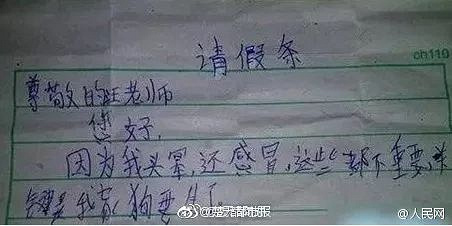 请假条
ch110
尊敬的旺老师
您好,
因为我头晕,还感冒,这些都不重要,关
键是我家狗要生了。
@楚天都市报
@人民网